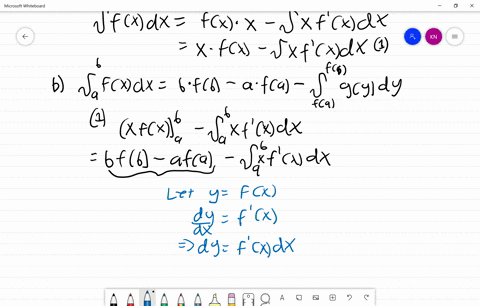 Microsoft Whiteboard
∫f(x)dx = f(x)·x − ∫x f'(x)dx
= x·f(x) − ∫x f'(x)dx (1)
b) ∫_a^b f(x)dx = b·f(b) − a·f(a) − ∫_{f(a)}^{f(b)} g(y)dy
(1) (x f(x)]_a^b − ∫_a^b x f'(x)dx
= b f(b) − a f(a) − ∫_a^b x f'(x)dx
Let y = f(x)
dy/dx = f'(x)
⇒ dy = f'(x)dx
KN